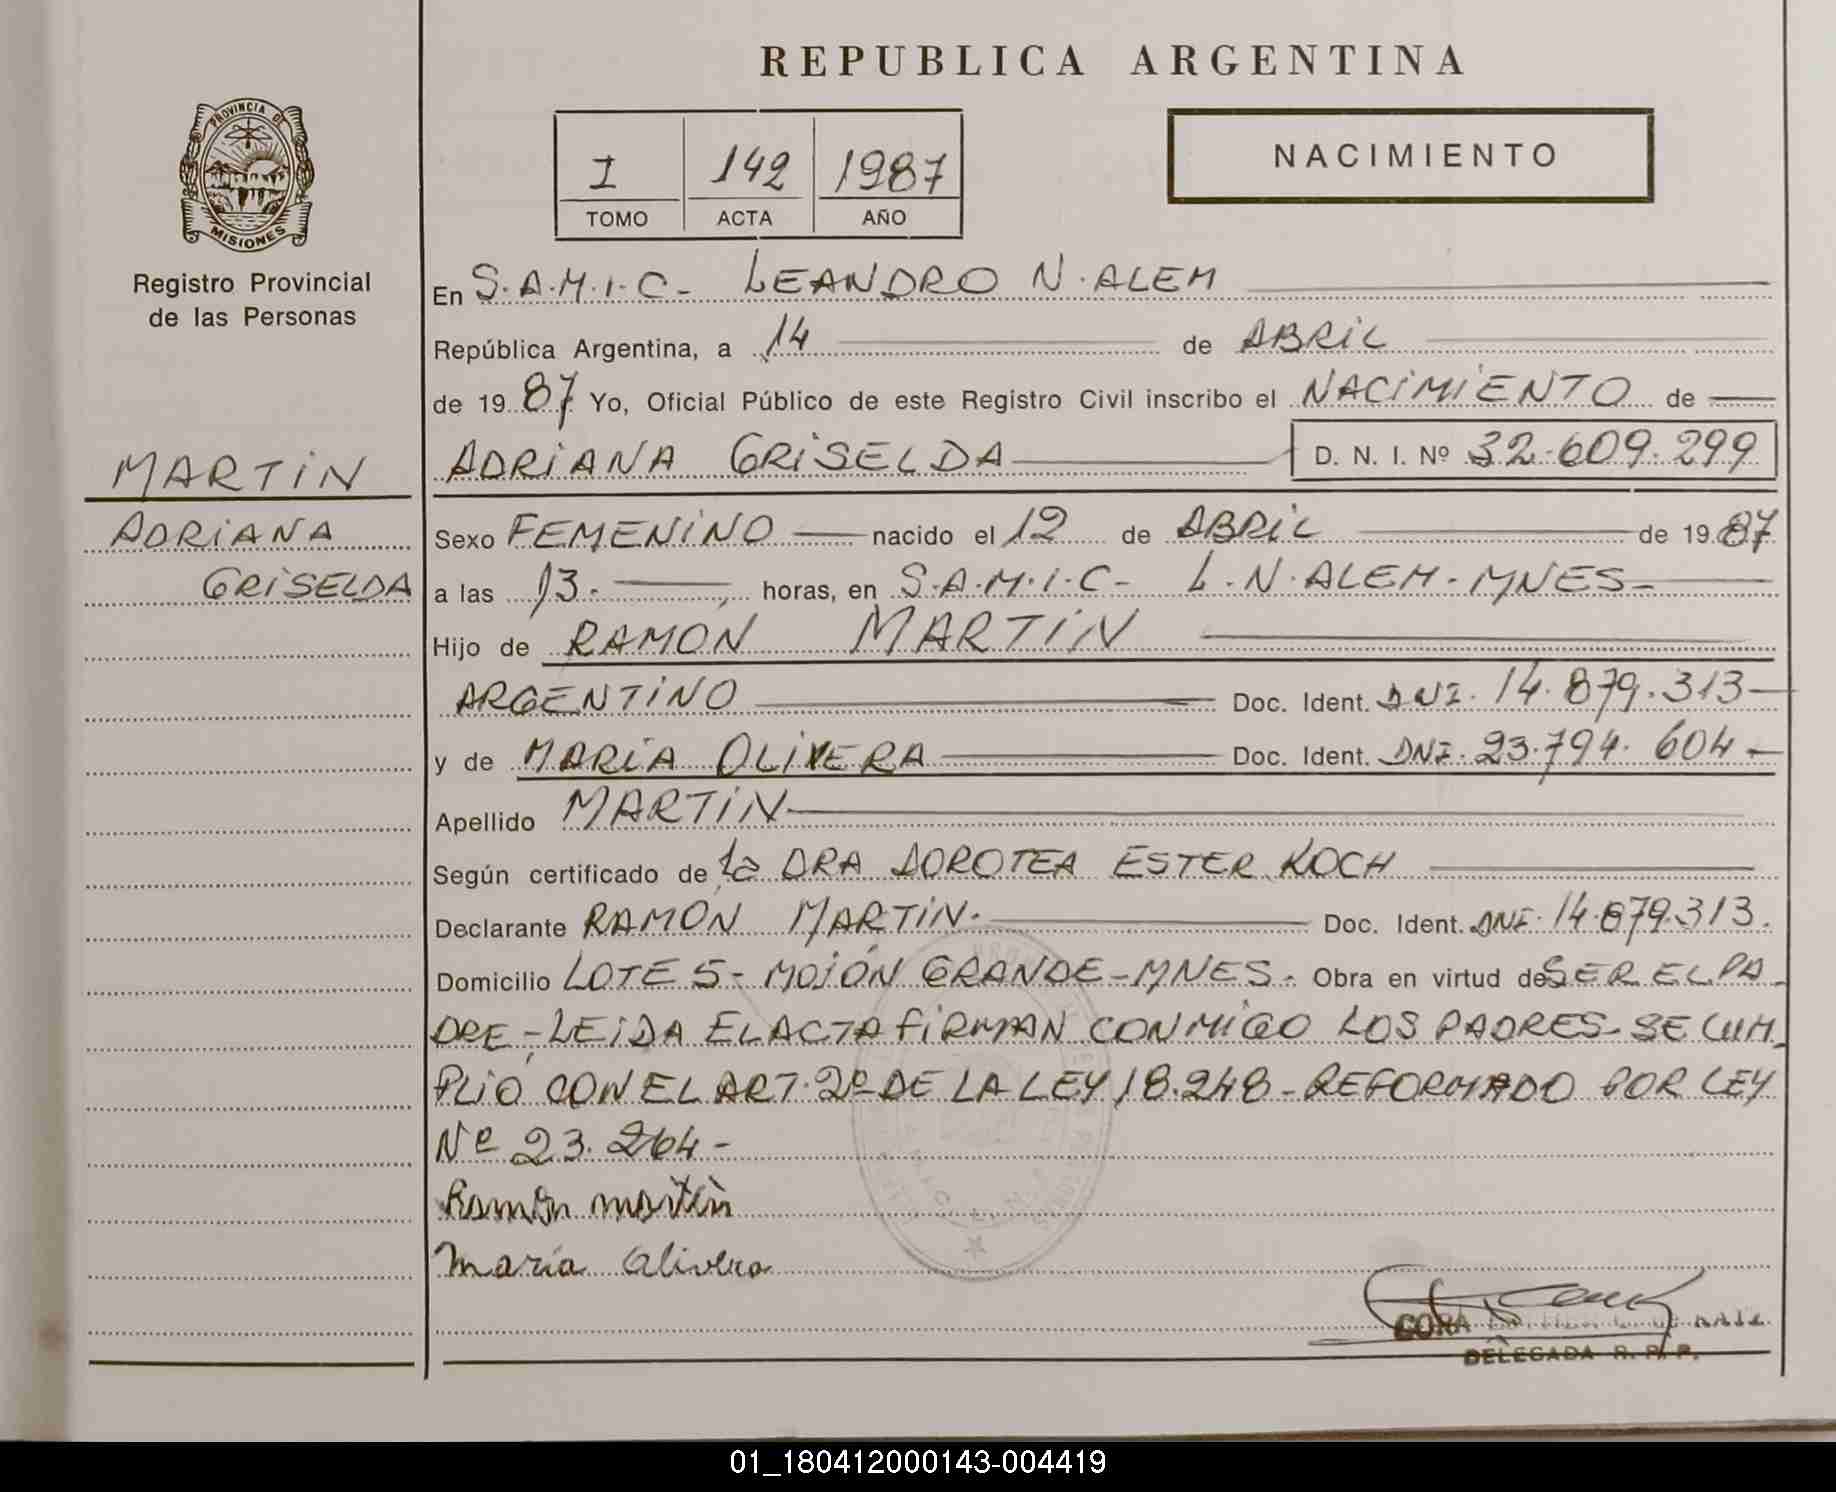 REPUBLICA ARGENTINA
PROVINCIA DE
MISIONES
Registro Provincial
de las Personas
I 142 1987
TOMO ACTA AÑO
NACIMIENTO
En S.A.M.I.C- LEANDRO N. ALEM
República Argentina, a 14 de ABRIL
de 1987 Yo, Oficial Público de este Registro Civil inscribo el NACIMIENTO de
MARTIN
ADRIANA GRISELDA D. N. I. Nº 32.609.299
ADRIANA
GRISELDA
Sexo FEMENINO nacido el 12 de ABRIL de 1987
a las 13.- horas, en S.A.M.I.C- L.N.ALEM-MNES-
Hijo de RAMON MARTIN
ARGENTINO Doc. Ident. DNI. 14.879.313-
y de MARIA OLIVERA Doc. Ident. DNI. 23.794.604-
Apellido MARTIN
Según certificado de la DRA DOROTEA ESTER KOCH
Declarante RAMON MARTIN.- Doc. Ident. DNI. 14.879.313.
Domicilio LOTE 5- MOJÓN GRANDE-MNES- Obra en virtud de SER EL PA-
DRE-LEIDA EL ACTA FIRMAN CONMIGO LOS PADRES-SE CUM-
PLIÓ CON EL ART. 2º DE LA LEY 18.248-REFORMADO POR LEY
Nº 23.264-
Ramón martín
maría Olivera
DELEGADA R. P. P.
01_180412000143-004419